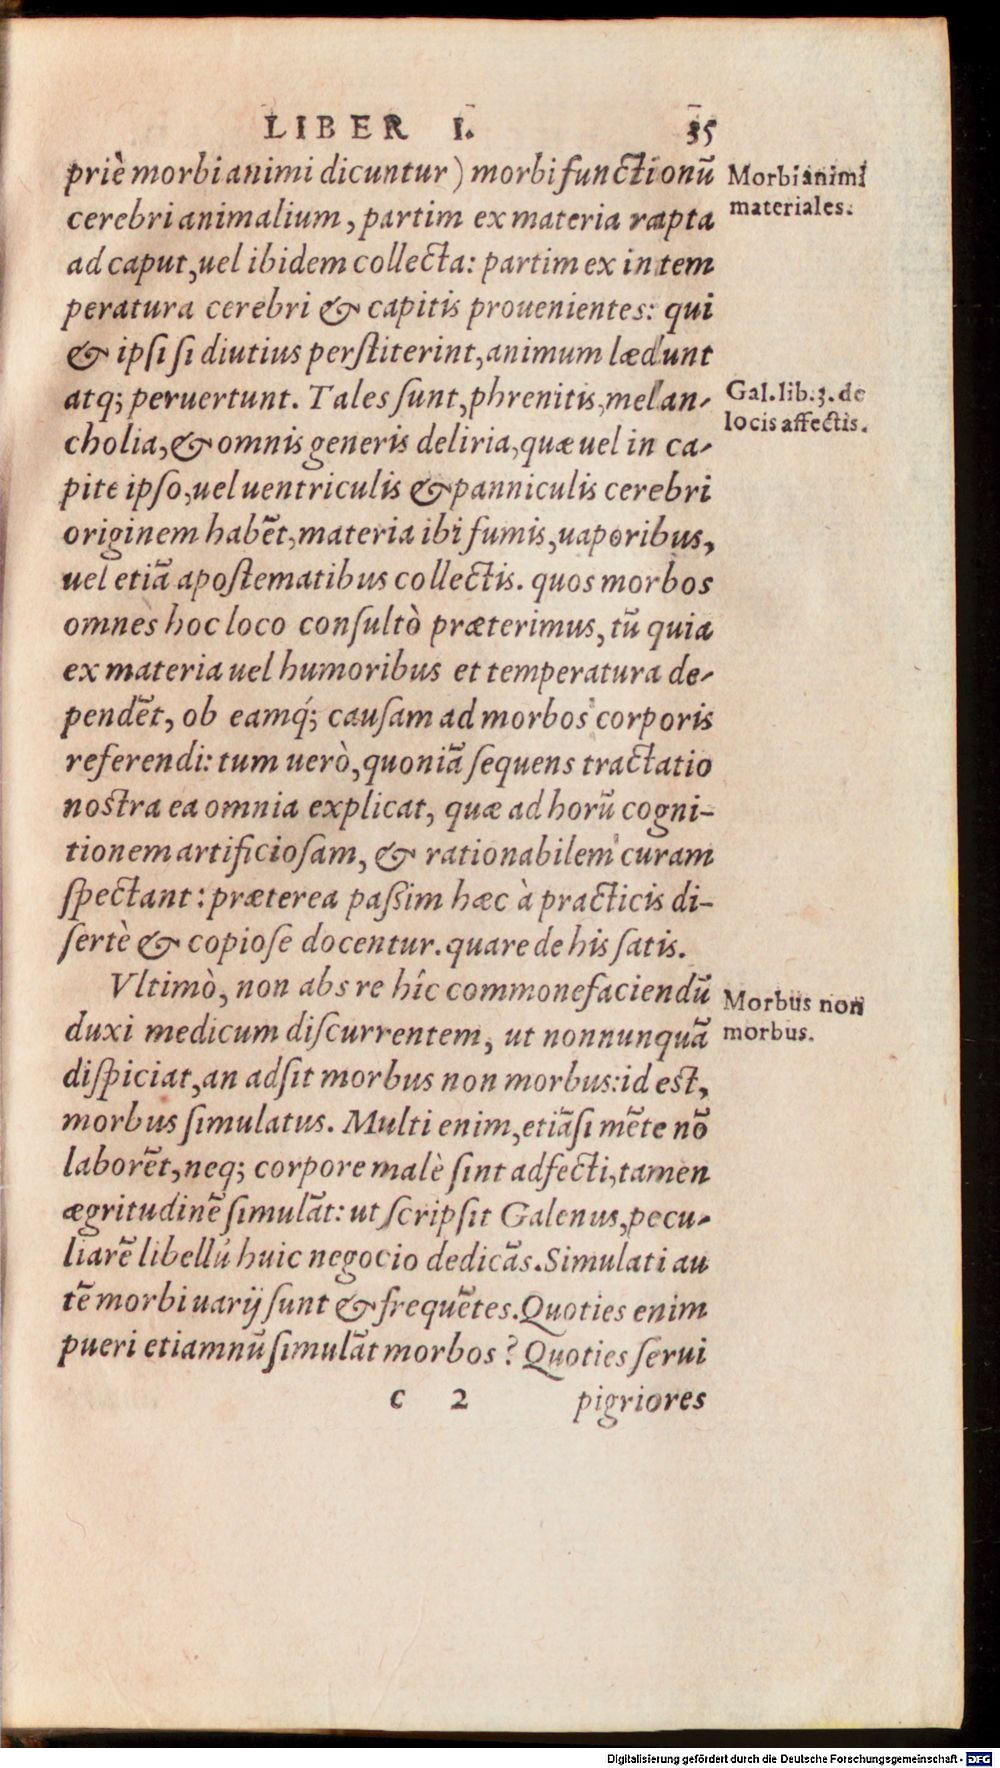 LIBER I. 35
priè morbi animi dicuntur) morbi functionū
Morbi animi
cerebri animalium, partim ex materia rapta
materiales.
ad caput, uel ibidem collecta: partim ex intem
peratura cerebri & capitis prouenientes: qui
& ipſi ſi diutius perſtiterint, animum lædunt
atq; peruertunt. Tales ſunt, phrenitis, melan-
Gal. lib. 3. de
cholia, & omnis generis deliria, quæ uel in ca-
locis affectis.
pite ipſo, uel uentriculis & panniculis cerebri
originem habẽt, materia ibi fumis, uaporibus,
uel etiã apoſtematibus collectis. quos morbos
omnes hoc loco conſultò præterimus, tũ quia
ex materia uel humoribus et temperatura de-
pendẽt, ob eamq́; cauſam ad morbos corporis
referendi: tum uerò, quoniã ſequens tractatio
noſtra ea omnia explicat, quæ ad horũ cogni-
tionem artificioſam, & rationabilem curam
ſpectant: præterea paſsim hæc à practicis di-
ſertè & copioſe docentur. quare de his ſatis.
Vltimò, non abs re hîc commonefaciendũ
Morbus non
duxi medicum diſcurrentem, ut nonnunquã
morbus.
diſpiciat, an adſit morbus non morbus: id eſt,
morbus ſimulatus. Multi enim, etiãſi mẽte nõ
laborẽt, neq; corpore malè ſint adfecti, tamen
ægritudinẽ ſimulãt: ut ſcripſit Galenus, pecu-
liarẽ libellũ huic negocio dedicãs. Simulati au
tẽ morbi uarij ſunt & frequẽtes. Quoties enim
pueri etiamnũ ſimulãt morbos? Quoties ſerui
c 2 pigriores
Digitalisierung gefördert durch die Deutsche Forschungsgemeinschaft - DFG